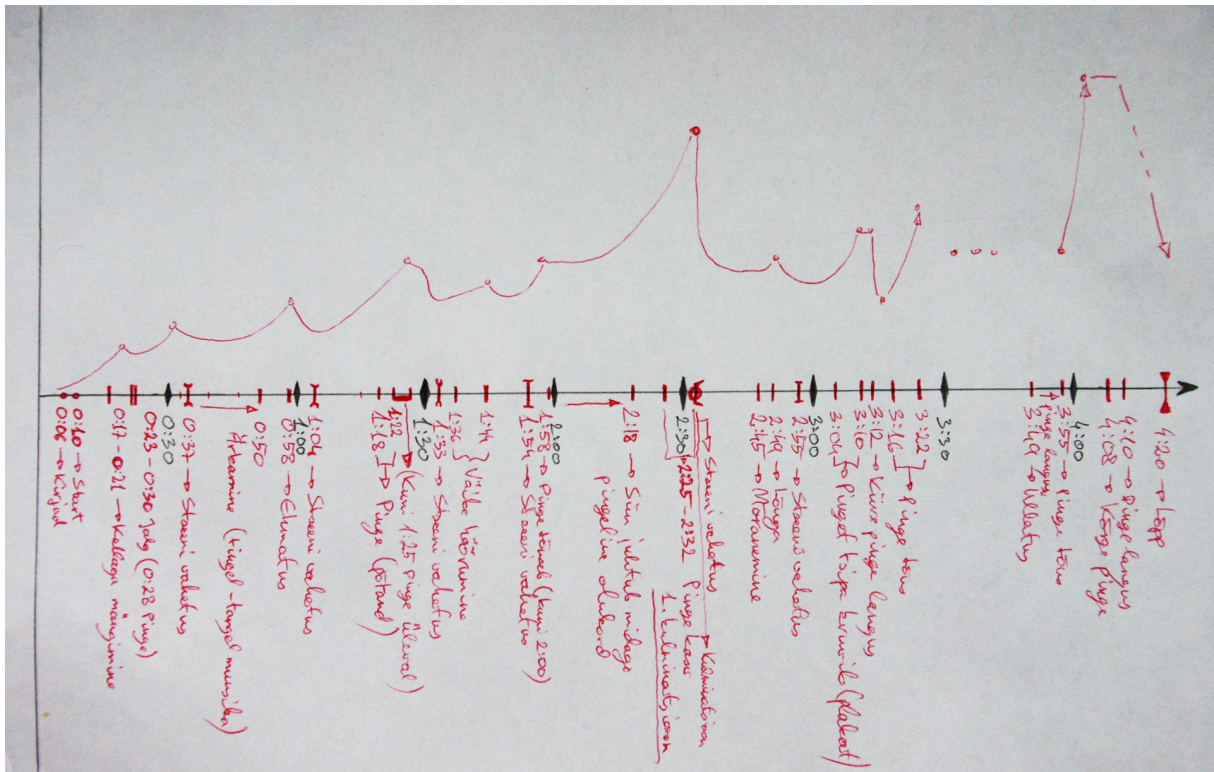 0:06 → Kirjad
0:10 → Start
0:17 - 0:21 → Kellaga mängimine
0:23 - 0:30 Jalg (0:28 Pinge)
0:30
0:37 → Stseeni vahetus
Ärkamine (tingel-tangel muusika)
0:50
0:58 → Ehmatus
1:00
1:04 → Stseeni vahetus
1:18 → Pinge (põrand)
1:22 (Kuni 1:25 pinge üleval)
1:30
1:33 → Stseeni vahetus
1:36
1:44
Väike hõõrumine
1:54 → Stseeni vahetus
1:58 → Pinge tõuseb (kuni 2:00)
2:00
2:18 → Siin juhtub midagi
pingeline olukord
2:30
2:25 - 2:32 Pinge kasv
1. kulminatsioon
Stseeni vahetus
Kulminatsioon
2:45 → Mõranemine
2:49 → Tõuge
2:55 → Stseeni vahetus
3:00
3:04
3:10
Pinget tsipa kruvib (plakat)
3:12 → Kiire pinge langus
3:16
3:22
Pinge tõus
3:30
3:49 → Üllatus
Pinge langus
3:55 → Pinge tõus
4:00
4:08 → Kõrge pinge
4:10 → Pinge langus
4:20 → Lõpp